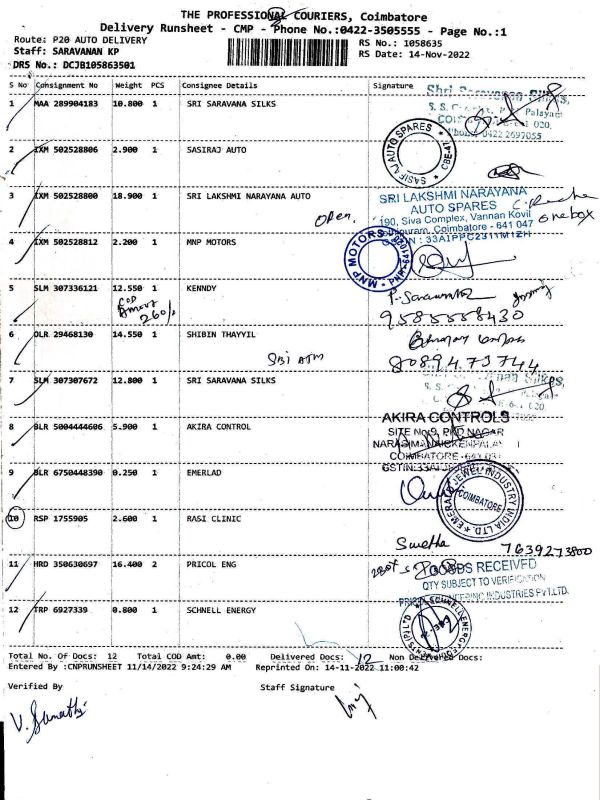 THE PROFESSIONAL COURIERS, Coimbatore
Delivery Runsheet - CMP - Phone No.:0422-3505555 - Page No.:1
Route: P20 AUTO DELIVERY
RS No.: 1058635
Staff: SARAVANAN KP
RS Date: 14-Nov-2022
DRS No.: DCJB105863501
S No Consignment No Weight PCS Consignee Details Signature
1 MAA 289904183 10.800 1 SRI SARAVANA SILKS
Shri Saravanan Silks,
020,
0422 2697055
2 IXM 502528806 2.900 1 SASIRAJ AUTO
SASIRAJ AUTO SPARES * CBE-47 *
3 IXM 502528800 18.900 1 SRI LAKSHMI NARAYANA AUTO
SRI LAKSHMI NARAYANA
AUTO SPARES
190, Siva Complex, Vannan Kovil
Coimbatore - 641 047
33AIPPC2311M1ZH
open.
one box
4 IXM 502528812 2.200 1 MNP MOTORS
MNP MOTORS
5 SLM 307336121 12.550 1 KENNDY
COD
Amount
260/.
9585558430
6 DLR 29468130 14.550 1 SHIBIN THAYYIL
SBI ATM
8089473744
7 SLM 307307672 12.800 1 SRI SARAVANA SILKS
8 BLR 5004444606 5.900 1 AKIRA CONTROL
AKIRA CONTROLS
SITE No.9, PRD NAGAR
NARASIMANAICKENPALAY
COIMBATORE - 641 031
9 BLR 6750448390 0.250 1 EMERLAD
EMERALD JEWEL INDUSTRY INDIA LTD. * COIMBATORE
10 RSP 1755905 2.600 1 RASI CLINIC
Swetha 7639273800
11 HRD 350630697 16.400 2 PRICOL ENG
GOODS RECEIVED
QTY SUBJECT TO VERIFICATION
PRICOL ENGINEERING INDUSTRIES PVT.LTD.
12 TRP 6927339 0.800 1 SCHNELL ENERGY
SCHNELL ENERGY
Total No. Of Docs: 12 Total COD Amt: 0.00 Delivered Docs: 12 Non Delivered Docs:
Entered By :CNPRUNSHEET 11/14/2022 9:24:29 AM Reprinted On: 14-11-2022 11:00:42
Verified By Staff Signature